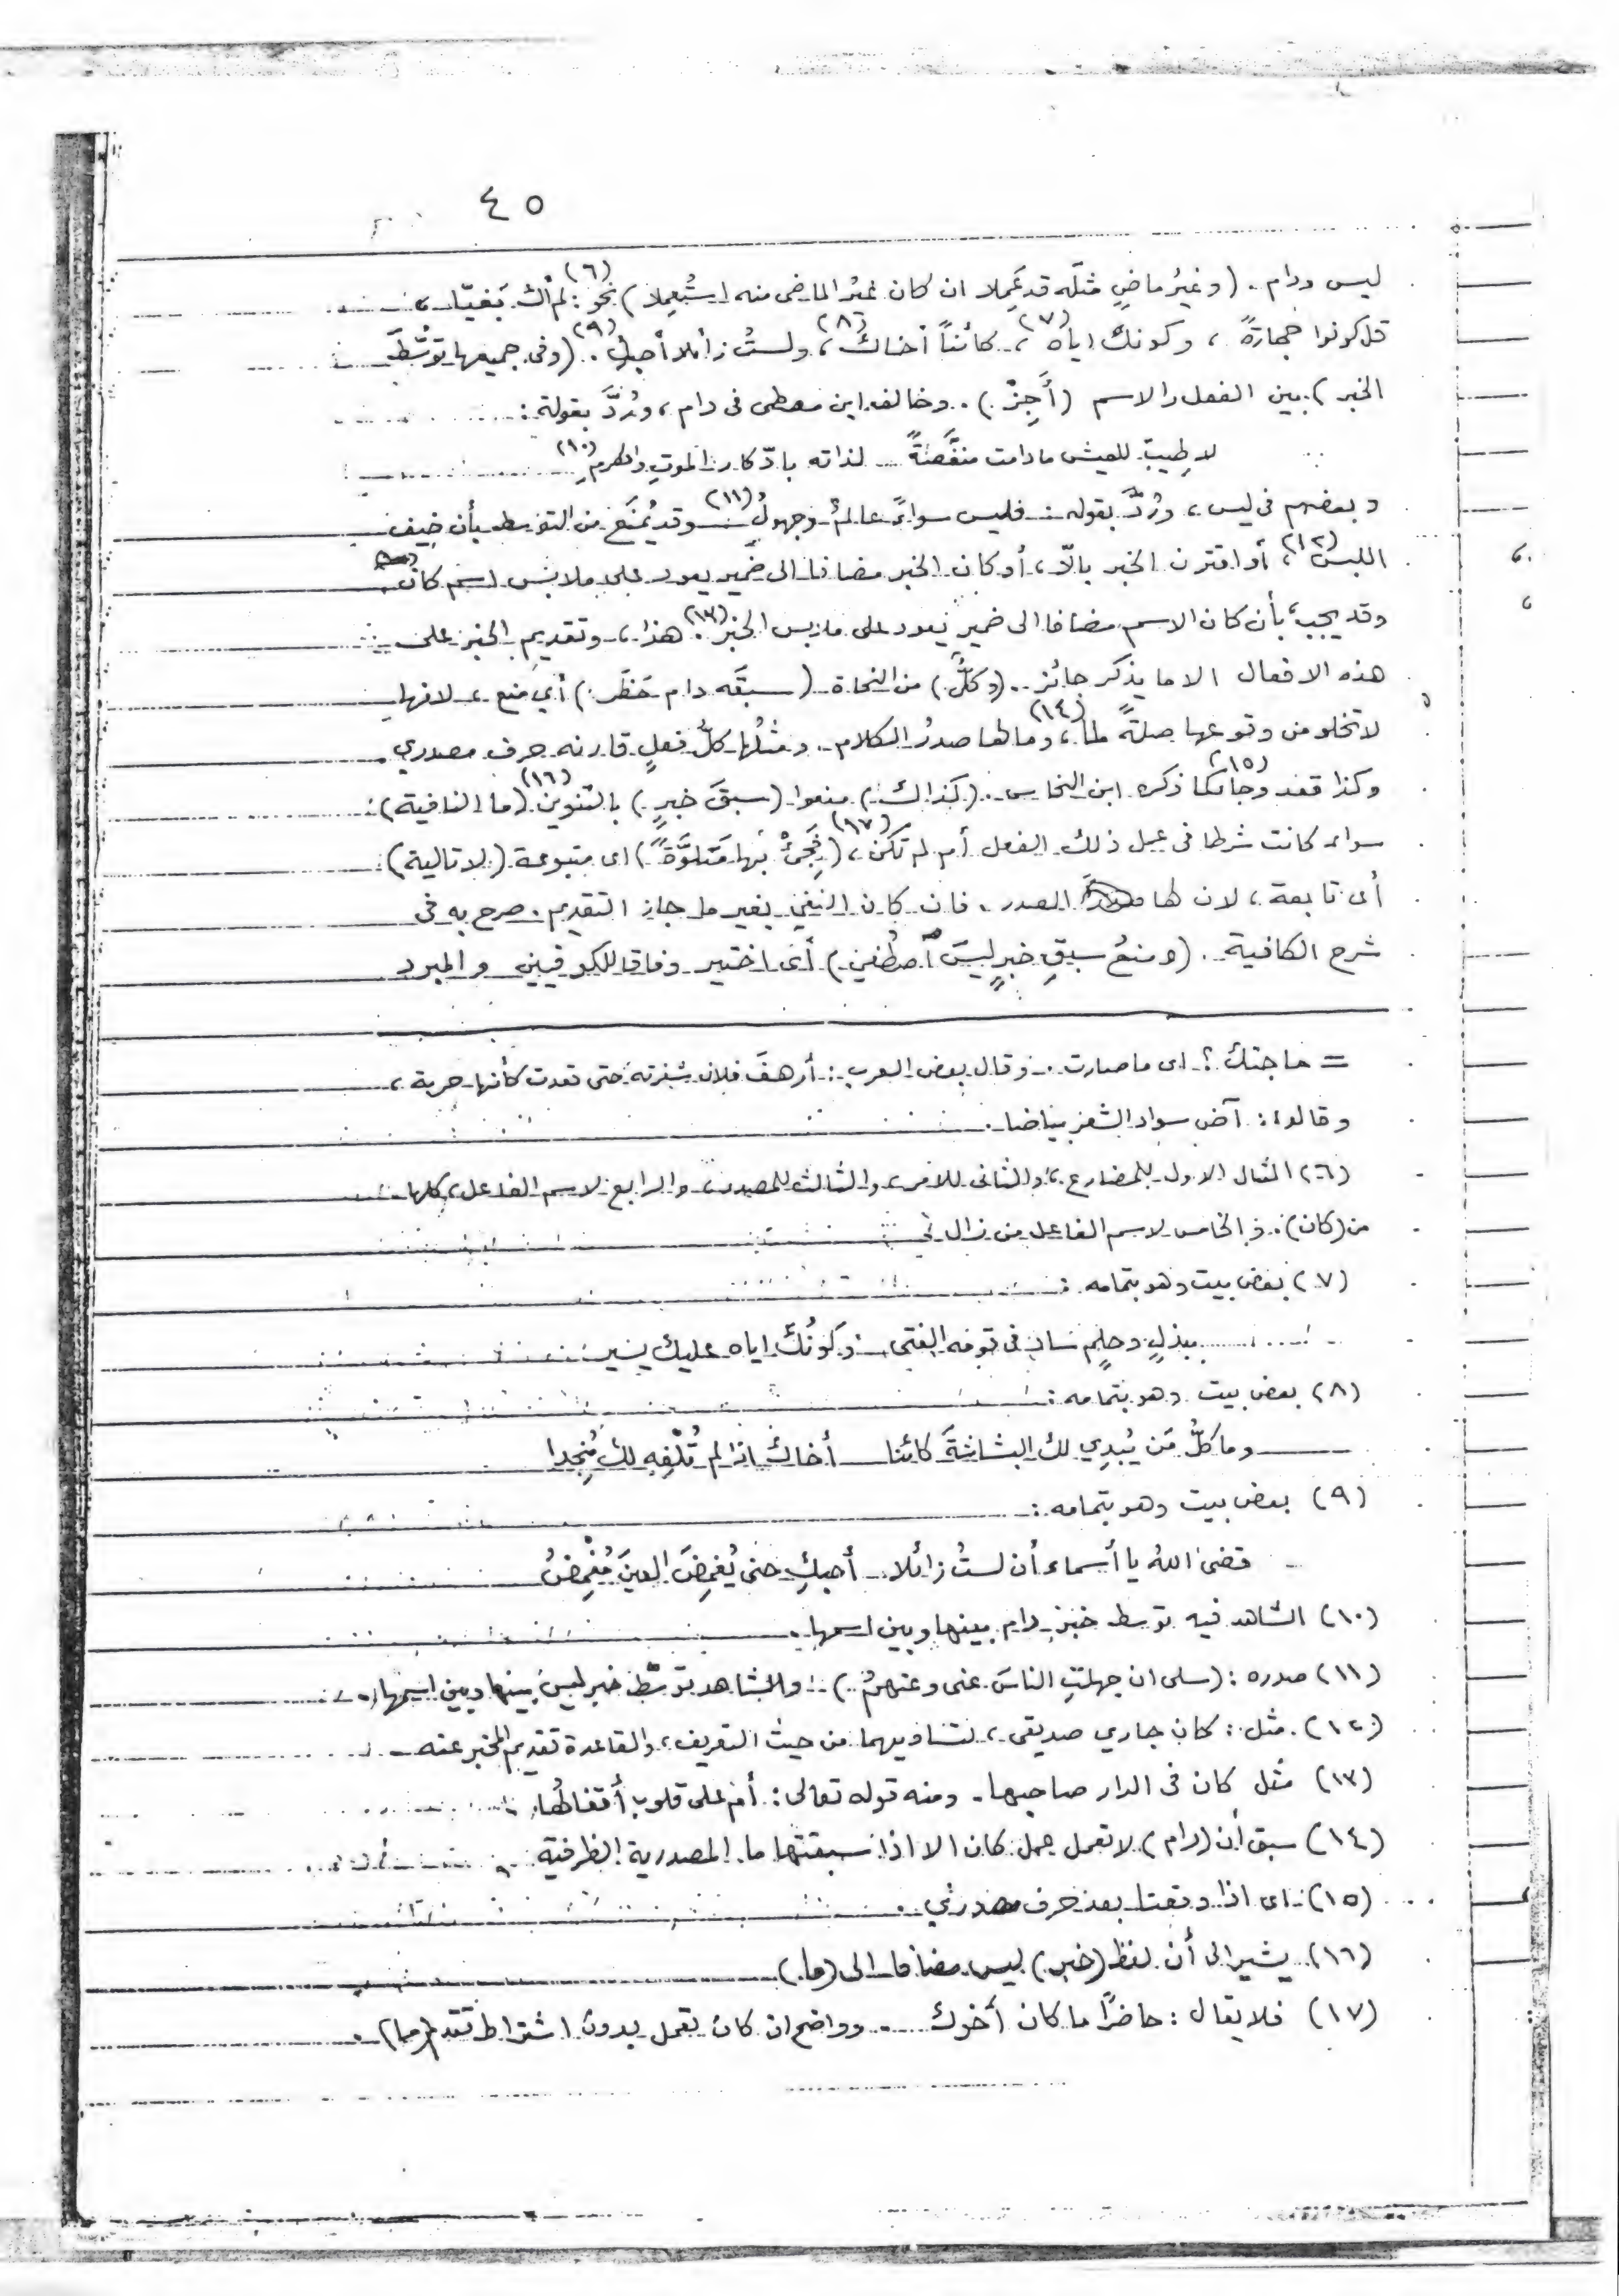 ٤٥
ليس ودام. (وغيرُ ماضٍ مثلَه قد عَمِلا ان كان غيرُ الماضى منه استُعمِلا) نحو(٦): لم أك بَغيّا،
قل كونوا حجارةً، وكونك اياه(٧)، كائناً أخاك(٨)، ولستُ زائلا أحبكِ(٩). (وفى جميعها توسُّطَ
الخبر) بين الفعل والاسم (أَجِزْ). وخالف ابن معطى فى دام، ورُدَّ بقوله:
لا طِيبَ للعيش مادامت منغَّصةً لذاته بادّكار الموتِ والهرمِ(١٠)
وبعضهم فى ليس، ورُدَّ بقوله: فليس سواءً عالمٌ وجهولُ(١١) وقد يُمنَع من التوسط بأن خِيف
اللبس(١٢)، أو اقترن الخبر بالّا، أو كان الخبر مضافا الى ضمير يعود على ملابس اسم كان
وقد يجب بأن كان الاسم مضافا الى ضمير يعود على ملابس الخبر(١٣). هذا، وتقديم الخبر على
هذه الافعال الا ما يذكر جائز. (وكلٌّ) من النحاة (سبقَه دام حَظَر) أي منع، لانها
لا تخلو من وقوعها صلةً لما(١٤)، وما لها صدرُ الكلام. ومثلُها كلُّ فعلٍ قارنه حرف مصدري.
وكذا قعد وجاء(١٥) كما ذكره ابن النحاس. (كذاك) منعوا (سبقَ خبرٍ) بالتنوين(١٦) (ما النافية):
سواء كانت شرطا فى عمل ذلك الفعل أم لم تكن(١٧)، (فجِئْ بها مَتلوَّةً) اى متبوعة (لا تالية):
أى تابعة، لان لها الصدر. فان كان النفي بغير ما جاز التقديم. صرح به فى
شرح الكافية. (ومنعُ سبقِ خبرٍ ليسَ اصطُفِي) أى اختير وفاقا للكوفيين والمبرد
= حاجتك؟ اى ما صارت. وقال بعض العرب: أرهفَ فلان شفرته حتى قعدت كأنها حربة،
وقالوا: آض سواد الشعر بياضا.
(٦) المثال الاول للمضارع، والثانى للامر، والثالث للمصدر، والرابع لاسم الفاعل، كلها
من (كان). والخامس لاسم الفاعل من زال
(٧) بعض بيت وهو بتمامه:
ببذلٍ وحلمٍ ساد فى قومه الفتى وكونُكَ اياه عليك يسير
(٨) بعض بيت وهو بتمامه:
وما كلُّ مَن يُبدِي لك البشاشةَ كائنا أخاكَ اذا لم تُلْفِهِ لك مُنجِدا
(٩) بعض بيت وهو بتمامه:
قضى اللهُ يا أسماء أن لستُ زائلا أحبكِ حتى يُغمِضَ العينَ مُغْمِضُ
(١٠) الشاهد فيه توسط خبر دام بينها وبين اسمها.
(١١) صدره: (سلى ان جهلتِ الناسَ عنى وعنهمُ). والشاهد توسّط خبر ليس بينها وبين اسمها.
(١٢) مثل: كان جاري صديقى، لتساويهما من حيث التعريف، والقاعدة تقديم المخبر عنه
(١٣) مثل كان فى الدار صاحبها. ومنه قوله تعالى: أم على قلوب أقفالُها.
(١٤) سبق أن (دام) لا تعمل عمل كان الا اذا سبقتها ما المصدرية الظرفية.
(١٥) اى اذا وقعتا بعد حرف مصدري.
(١٦) يشير الى أن لفظ (خبر) ليس مضافا الى (ما)
(١٧) فلا يقال: حاضرًا ما كان أخوك. وواضح ان كان تعمل بدون اشتراط تقدم (ما).